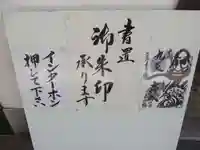 書置
御朱印
承ります
インターホン
押して下さい